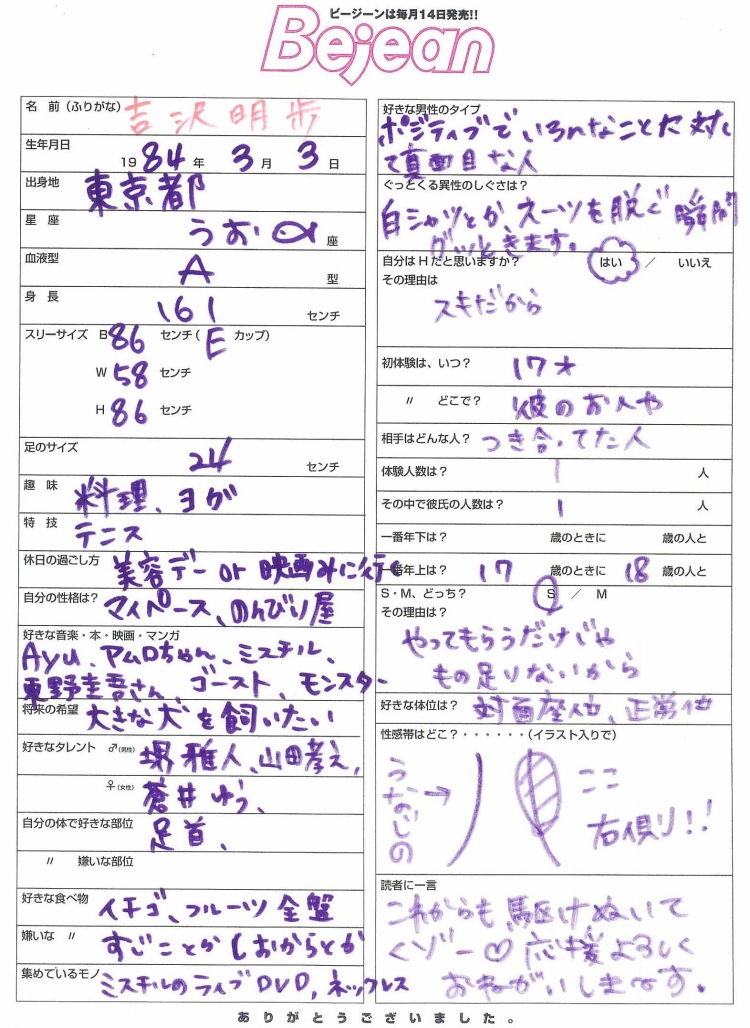 ビージーンは毎月14日発売!!
Bejean
名 前（ふりがな） 吉沢明歩
生年月日
1984年 3月 3日
出身地 東京都
星 座 うお座
血液型 A 型
身 長 161 センチ
スリーサイズ B 86 センチ（E カップ）
W 58 センチ
H 86 センチ
足のサイズ 24 センチ
趣 味 料理、ヨガ
特 技 テニス
休日の過ごし方 美容デー or 映画みに行く
自分の性格は？ マイペース、のんびり屋
好きな音楽・本・映画・マンガ
Ayu、アムロちゃん、ミスチル、
東野圭吾さん、ゴースト、モンスター
将来の希望 大きな犬を飼いたい
好きなタレント ♂（男性） 堺雅人、山田孝之、
♀（女性） 蒼井ゆう、
自分の体で好きな部位 足首、
〃 嫌いな部位
好きな食べ物 イチゴ、フルーツ全盤
嫌いな 〃 すじことかしおからとか
集めているモノ ミスチルのライブDVD、ネックレス
好きな男性のタイプ
ポジティブでいろんなことに対し
て真面目な人
ぐっとくる異性のしぐさは？
白シャツとか、スーツを脱ぐ瞬間
グッときます。
自分はHだと思いますか？ はい ／ いいえ
その理由は
スキだから
初体験は、いつ？ 17才
〃 どこで？ 彼のお
相手はどんな人？ つき合ってた人
体験人数は？ 1 人
その中で彼氏の人数は？ 1 人
一番年下は？ 歳のときに 歳の人と
一番年上は？ 17 歳のときに 18 歳の人と
S・M、どっち？ S ／ M
その理由は？
やってもらうだけじゃ
もの足りないから
好きな体位は？ 対面座位、正常位
性感帯はどこ？・・・・・・（イラスト入りで）
うなじの→
ここ
右側り!!
読者に一言
これからも、駆けぬいて
くゾー♡応援よろしく
おねがいします。
ありがとうございました。